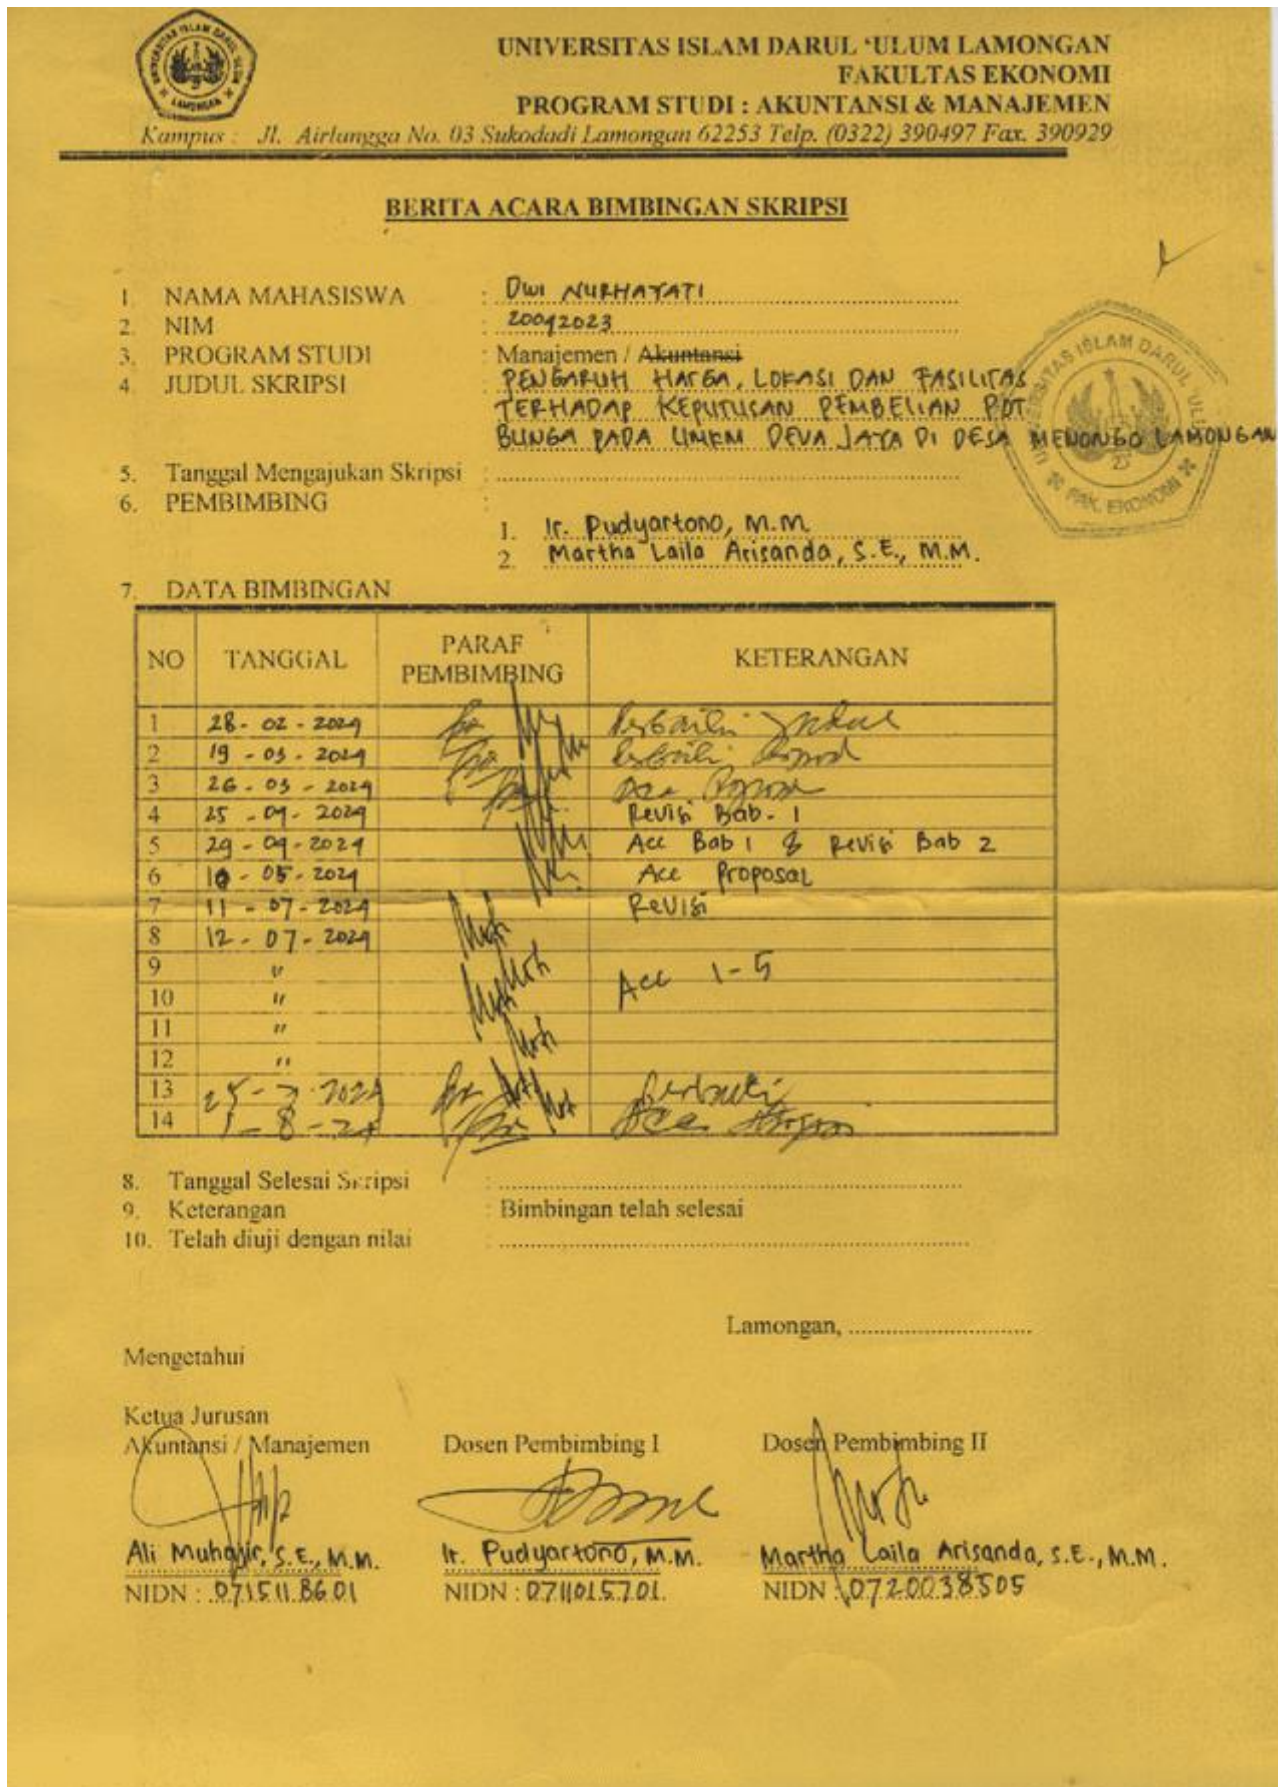 UNIVERSITAS ISLAM DARUL 'ULUM LAMONGAN
FAKULTAS EKONOMI
PROGRAM STUDI : AKUNTANSI & MANAJEMEN
Kampus : Jl. Airlangga No. 03 Sukodadi Lamongan 62253 Telp. (0322) 390497 Fax. 390929
BERITA ACARA BIMBINGAN SKRIPSI
1. NAMA MAHASISWA : DWI NURHAYATI
2. NIM : 20042023
3. PROGRAM STUDI : Manajemen / Akuntansi
4. JUDUL SKRIPSI : PENGARUH HARGA, LOKASI DAN FASILITAS
TERHADAP KEPUTUSAN PEMBELIAN POT
BUNGA PADA UMKM DEVA JAYA DI DESA MENONGO LAMONGAN
5. Tanggal Mengajukan Skripsi :
6. PEMBIMBING :
1. Ir. Pudyartono, M.M
2. Martha Laila Arisanda, S.E., M.M.
UNIVERSITAS ISLAM DARUL 'ULUM
FAK. EKONOMI
7. DATA BIMBINGAN
NO TANGGAL PARAF PEMBIMBING KETERANGAN
1 28 - 02 - 2024
2 19 - 03 - 2024
3 26 - 03 - 2024 Acc
4 25 - 04 - 2024 Revisi Bab - 1
5 29 - 04 - 2024 Acc Bab 1 & Revisi Bab 2
6 10 - 05 - 2024 Acc Proposal
7 11 - 07 - 2024 Revisi
8 12 - 07 - 2024
9 "
10 " Acc 1-5
11 "
12 "
13 25 - 7 - 2024
14 1 - 8 - 24 Acc
8. Tanggal Selesai Skripsi :
9. Keterangan : Bimbingan telah selesai
10. Telah diuji dengan nilai :
Lamongan,
Mengetahui
Ketua Jurusan
Akuntansi / Manajemen Dosen Pembimbing I Dosen Pembimbing II
Ali Muhajir, S.E., M.M. Ir. Pudyartono, M.M. Martha Laila Arisanda, S.E., M.M.
NIDN : 0715118601 NIDN : 0711015701. NIDN : 0720038505